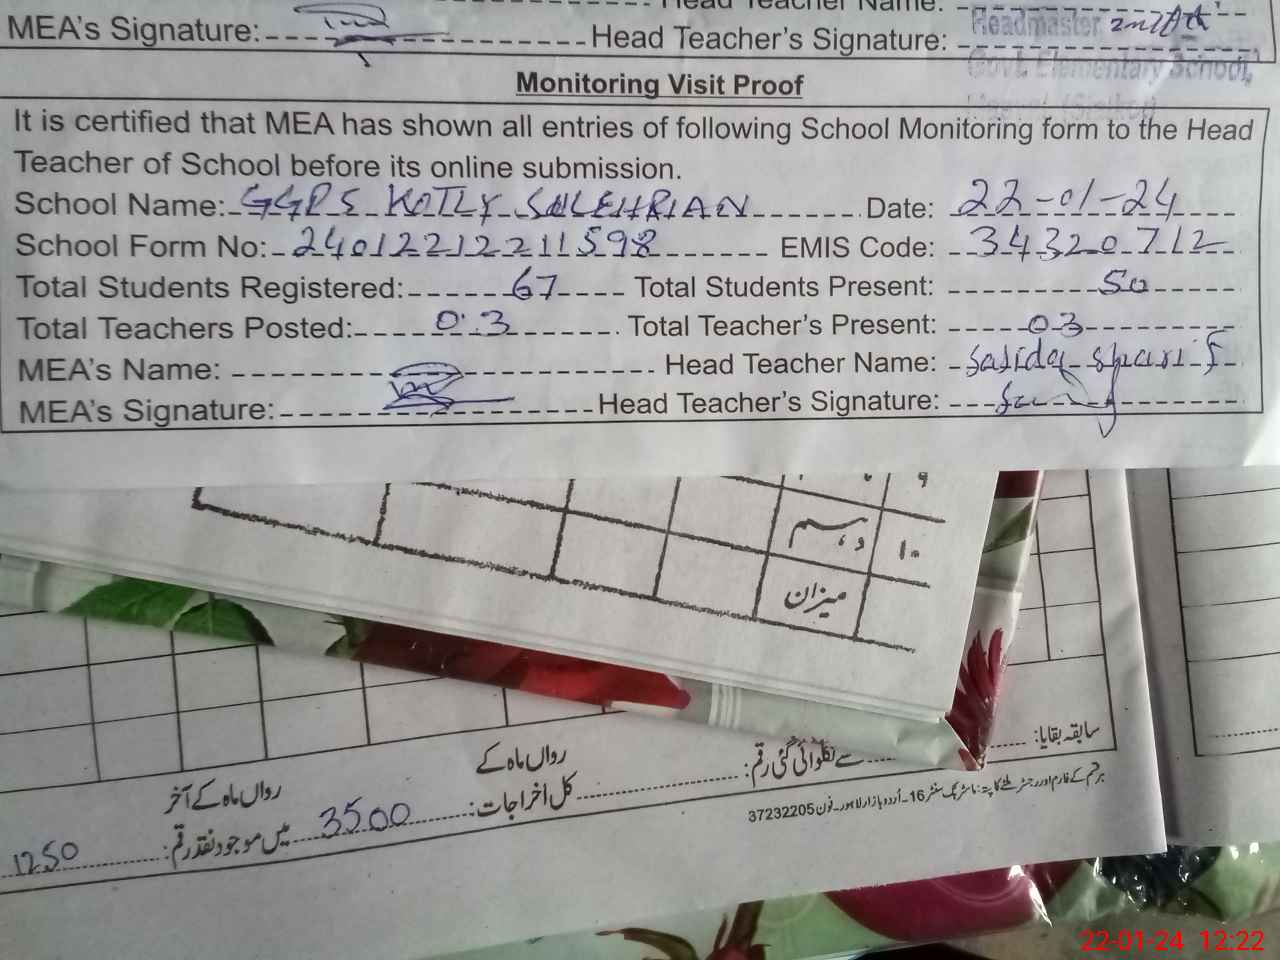 Head Teacher Name:
MEA's Signature: Head Teacher's Signature:
Headmaster
Govt. Elementary School,
Monitoring Visit Proof
It is certified that MEA has shown all entries of following School Monitoring form to the Head
Teacher of School before its online submission.
School Name: GGPS KOTLY SALEHRIAN Date: 22-01-24
School Form No: 2401221221 1598 EMIS Code: 34320712
Total Students Registered: 67 Total Students Present: 50
Total Teachers Posted: 03 Total Teacher's Present: 03
MEA's Name: Head Teacher Name: Sajida sharif
MEA's Signature: Head Teacher's Signature:
۹
۱۰ دہم
میزان
سابقہ بقایا: سے نکلوائی گئی رقم: رواں ماہ کے
کل اخراجات: 3500 رواں ماہ کے آخر
میں موجود نقد رقم: 1250
ہر قسم کے فارم اور رجسٹر ملنے کا پتہ: 16۔اُردو بازار لاہور۔فون 37232205
22-01-24 12:22